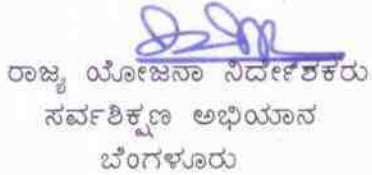 ರಾಜ್ಯ ಯೋಜನಾ ನಿರ್ದೇಶಕರು
ಸರ್ವಶಿಕ್ಷಣ ಅಭಿಯಾನ
ಬೆಂಗಳೂರು